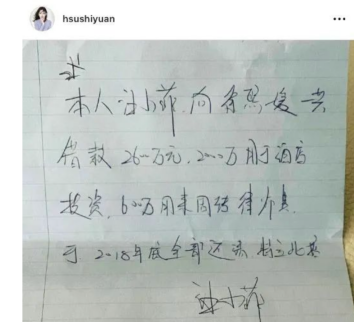 hsushiyuan
本人汪小菲，向徐熙媛共
借款2600万元，2000万用于酒店
投资，600万用来周转律师费
于2018年底全部还清 特立此据
汪小菲